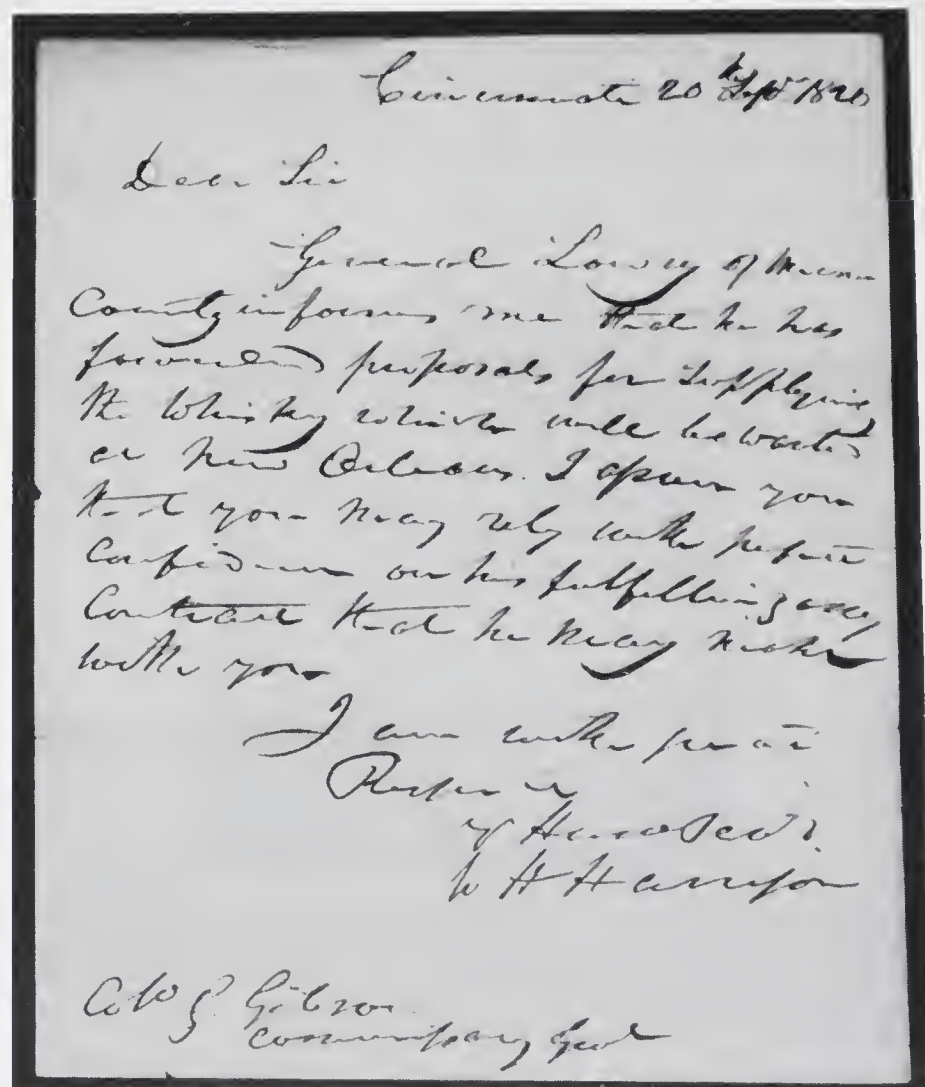 Cincinnati 20th Sept 1820
Dear Sir
General Lowry of Miami
County informs me that he has
forwarded proposals for supplying
the Whiskey which will be wanted
at New Orleans. I assure you
that you may rely with perfect
confidence on his fulfilling any
Contract that he may make
with you
I am with great
Respect
yr Hum Servt.
W H Harrison
Colo G Gibson
Commissary Genl